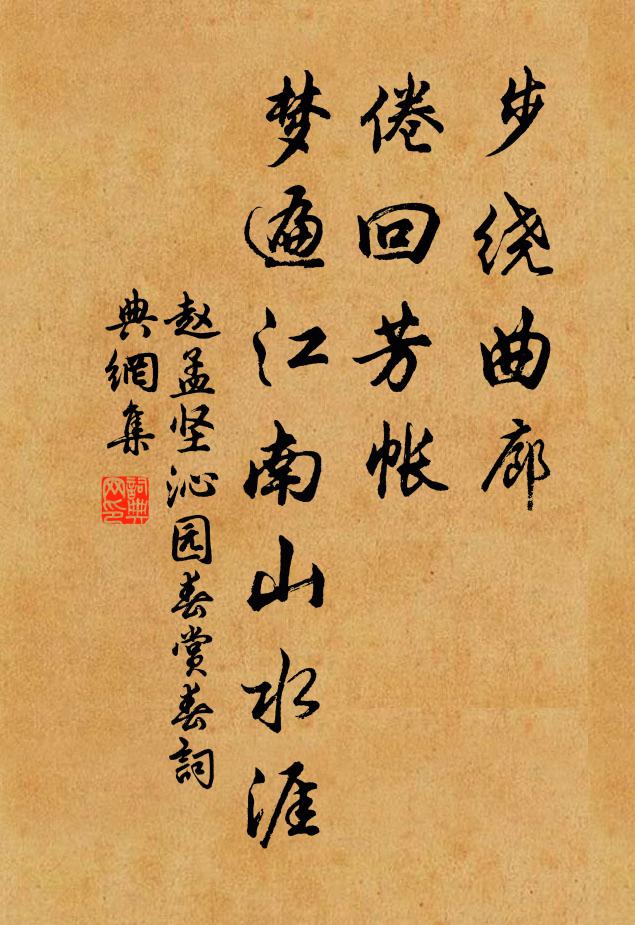 步绕曲廊
倦回芳帐
梦遍江南山水涯
赵孟坚沁园春赏春詞
典網集
詞典网印